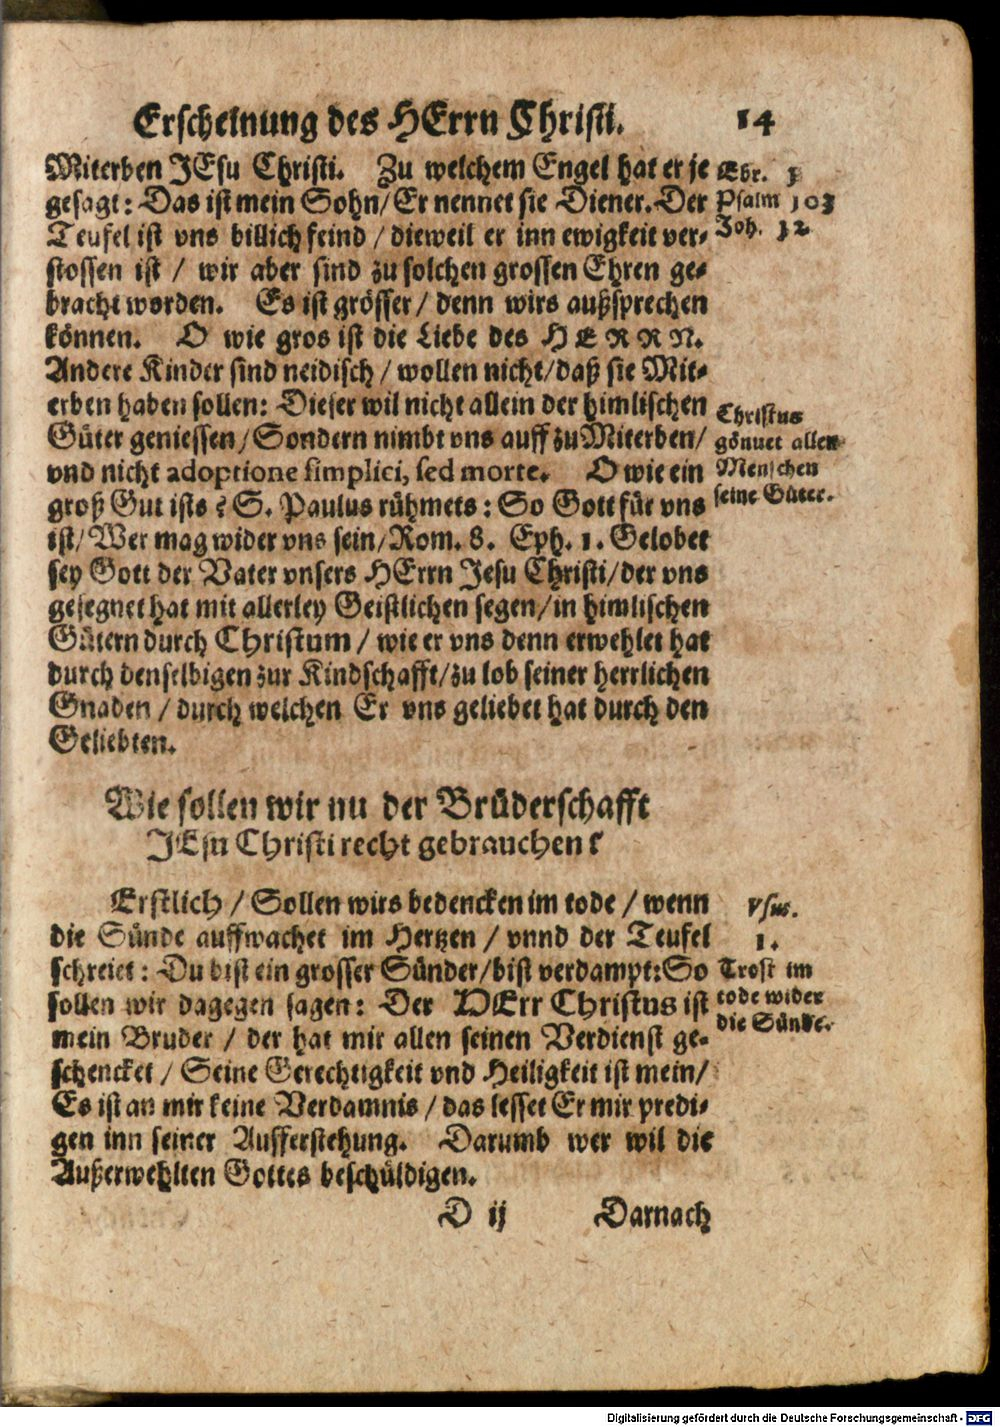 Erscheinung des HErrn Christi. 14
Miterben JEsu Christi. Zu welchem Engel hat er je
gesagt: Das ist mein Sohn/ Er nennet sie Diener. Der
Teufel ist vns billich feind / dieweil er inn ewigkeit ver-
stossen ist / wir aber sind zu solchen grossen Ehren ge-
bracht worden. Es ist grösser / denn wirs außsprechen
können. O wie gros ist die Liebe des HERRN.
Andere Kinder sind neidisch / wollen nicht / daß sie Mit-
erben haben sollen: Dieser wil nicht allein der himlischen
Güter geniessen / Sondern nimbt vns auff zu Miterben /
vnd nicht adoptione simplici, sed morte. O wie ein
groß Gut ists? S. Paulus rühmets: So Gott für vns
ist / Wer mag wider vns sein / Rom. 8. Eph. 1. Gelobet
sey Gott der Vater vnsers HErrn Jesu Christi / der vns
gesegnet hat mit allerley Geistlichen segen / in himlischen
Gütern durch Christum / wie er vns denn erwehlet hat
durch denselbigen zur Kindschafft / zu lob seiner herrlichen
Gnaden / durch welchen Er vns geliebet hat durch den
Geliebten.
Ebr. 1
Psalm 103
Joh. 12
Christus
gönnet allen
Menschen
seine Güter.
Wie sollen wir nu der Brüderschafft
JEsu Christi recht gebrauchen?
Erstlich / Sollen wirs bedencken im tode / wenn
die Sünde auffwachet im Hertzen / vnnd der Teufel
schreiet: Du bist ein grosser Sünder / bist verdampt: So
sollen wir dagegen sagen: Der HErr Christus ist
mein Bruder / der hat mir allen seinen Verdienst ge-
schencket / Seine Gerechtigkeit vnd Heiligkeit ist mein /
Es ist an mir keine Verdamnis / das lesset Er mir predi-
gen inn seiner Aufferstehung. Darumb wer wil die
Außerwehlten Gottes beschüldigen.
Vsus.
1.
Trost im
tode wider
die Sünde.
D ij Darnach
Digitalisierung gefördert durch die Deutsche Forschungsgemeinschaft - DFG